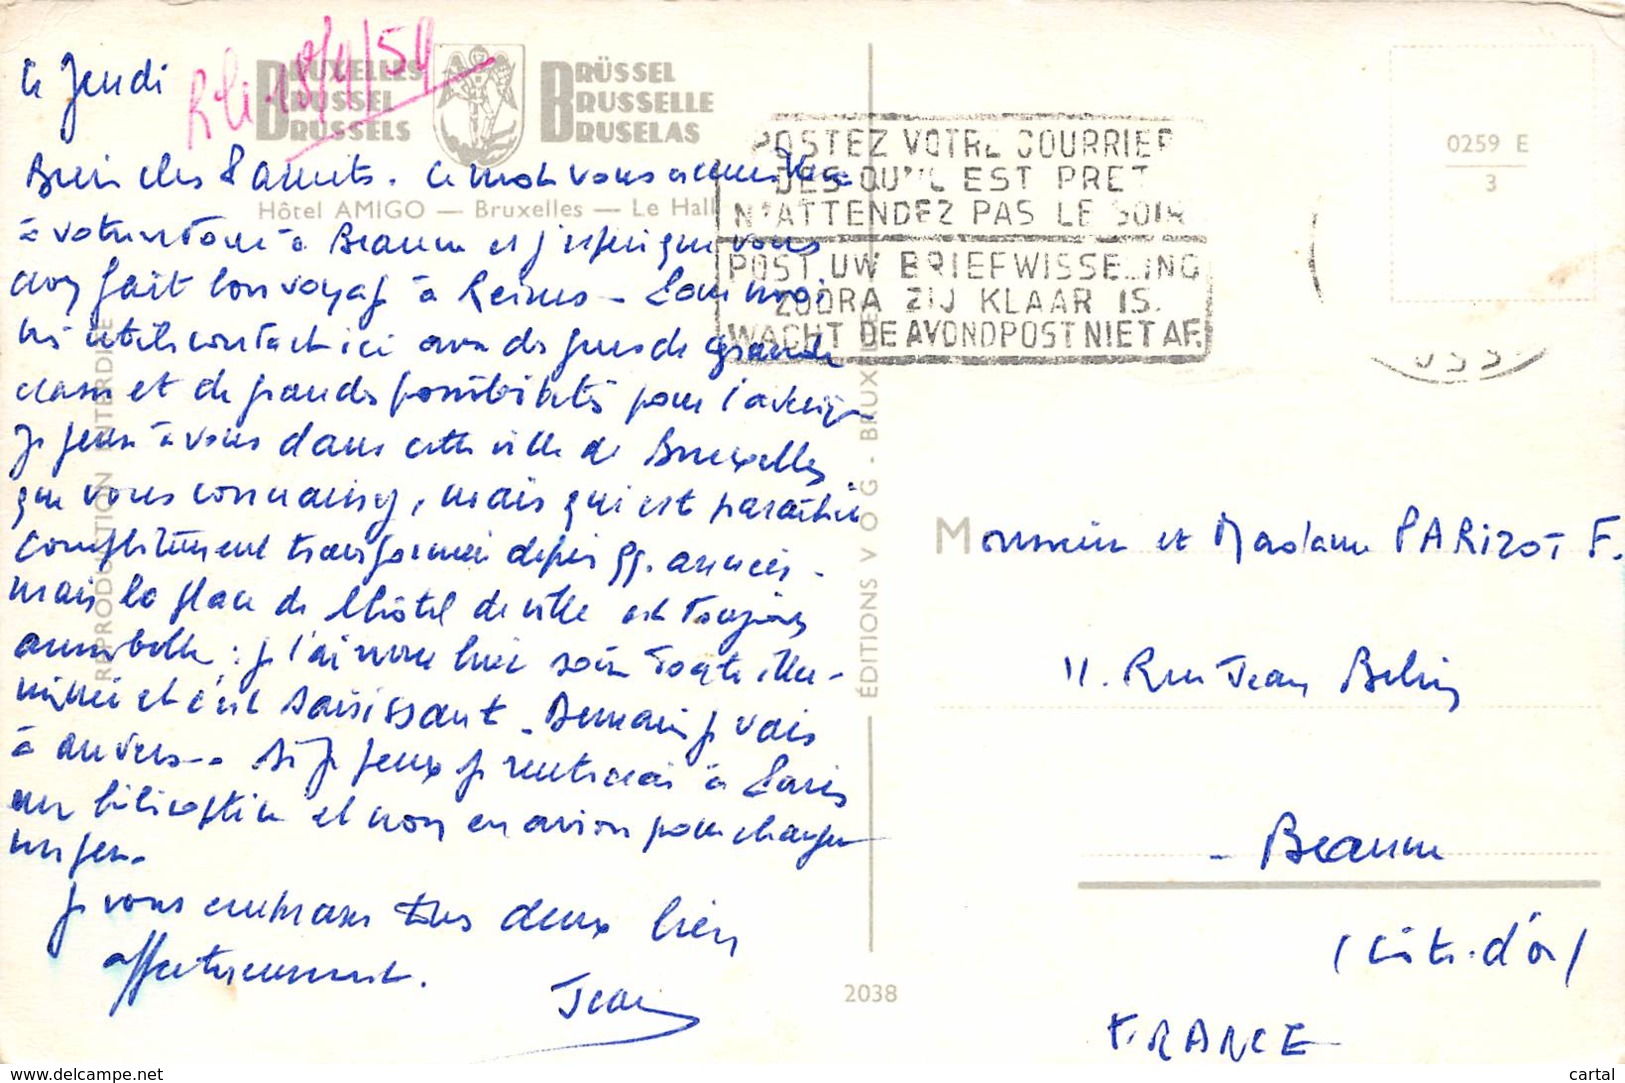 Le Jeudi
Rte. 18/4/59
BRUXELLES
BRUSSEL
BRUSSELS
BRÜSSEL
BRUSSELLE
BRUSELAS
Hôtel AMIGO — Bruxelles — Le Hall
Bien chers Parents. Ce mot vous accueillera
à votre retour à Beaune et j'espère que vous
avez fait bon voyage à Reims - Pour moi
très utiles contacts ici avec des gens de grande
classe et de grandes possibilités pour l'avenir
Je pense à vous dans cette ville de Bruxelles
que vous connaissez, mais qui est paraît-il
complètement transformée depuis qq. années -
mais la place de l'hôtel de ville est toujours
aussi belle : je l'ai revue hier soir toute illu-
minée et c'est saisissant - Demain je vais
à Anvers -. Si je peux je rentrerai à Paris
en hélicoptère et non en avion pour changer
un peu.
Je vous embrasse tous deux bien
affectueusement.
Jean
REPRODUCTION INTERDITE
ÉDITIONS VOG - BRUXELLES
2038
POSTEZ VOTRE COURRIER
DES QU'IL EST PRET
N'ATTENDEZ PAS LE SOIR
POST UW BRIEFWISSELING
ZODRA ZIJ KLAAR IS.
WACHT DE AVONDPOST NIET AF.
0259 E
3
Monsieur et Madame PARIZOT F.
11. Rue Jean Belin
- Beaune
(Côte-d'or)
FRANCE
www.delcampe.net
cartal